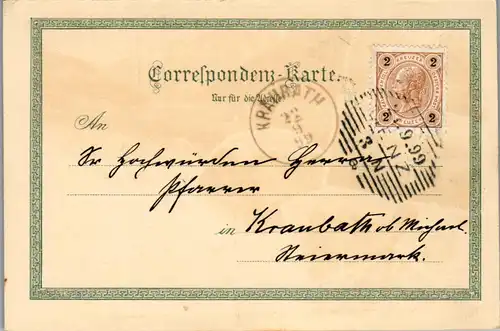 2 2
Correspondenz-Karte.
Nur für die Adresse
KRAUBATH
22
9
99
2 2
9.99
An
Sr Hochwürden Herrn
Pfarrer
in Kraubath ob Michael.
Steiermark.